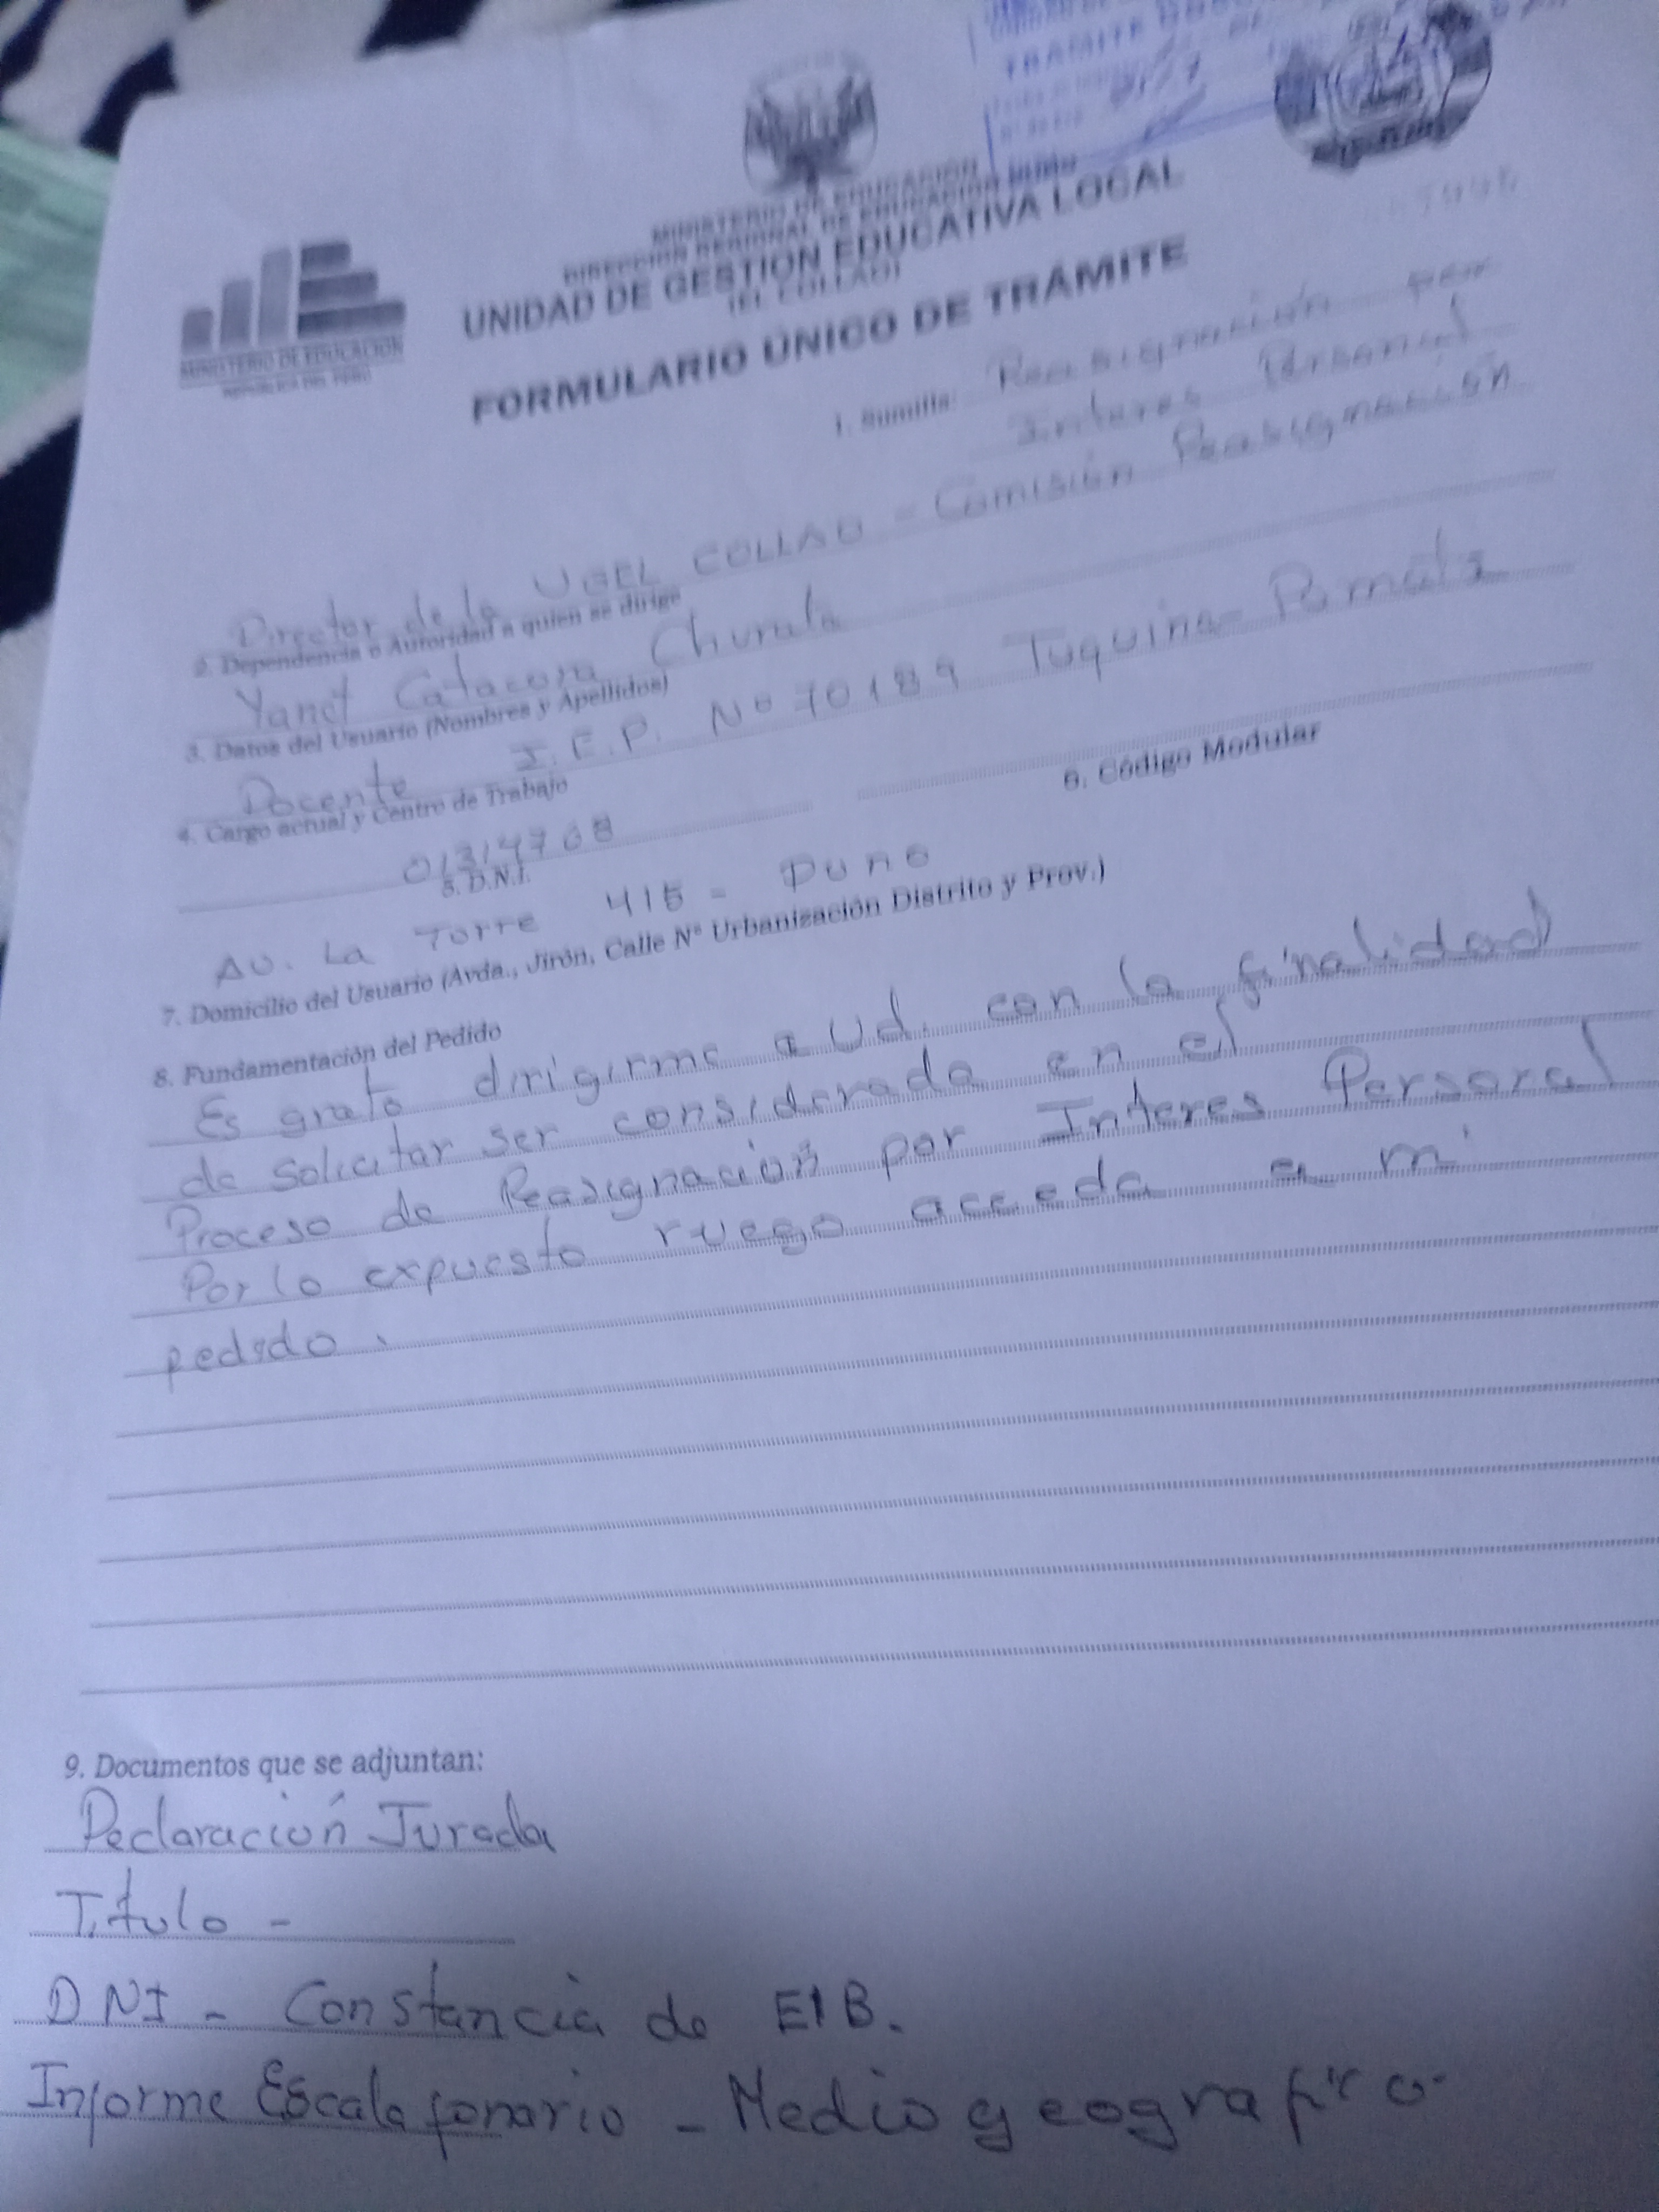 TRAMITE
MINISTERIO DE EDUCACIÓN
DIRECCIÓN REGIONAL DE EDUCACIÓN PUNO
UNIDAD DE GESTIÓN EDUCATIVA LOCAL
(EL COLLAO)
FORMULARIO ÚNICO DE TRÁMITE
MINISTERIO DE EDUCACIÓN
REPÚBLICA DEL PERÚ
1. Sumilla: Reasignación por
Interes Personal
Director de la UGEL COLLAO - Comisión Reasignación
2. Dependencia o Autoridad a quien se dirige
Yanet Catacora Churula
3. Datos del Usuario (Nombres y Apellidos)
Docente I.E.P. Nº 70189 Tuquina - Pomata
4. Cargo actual y Centro de Trabajo
01314708
5. D.N.I.
6. Código Modular
AV. La Torre 415 - Puno
7. Domicilio del Usuario (Avda., Jirón, Calle Nº Urbanización Distrito y Prov.)
8. Fundamentación del Pedido
Es grato dirigirme a Ud. con la finalidad
de solicitar ser considerada en el
Proceso de Reasignación por Interes Personal
Por lo expuesto ruego acceda a mi
pedido.
9. Documentos que se adjuntan:
Declaración Jurada
Título -
DNI - Constancia de EIB.
Informe Escalafonario - Medio geografico